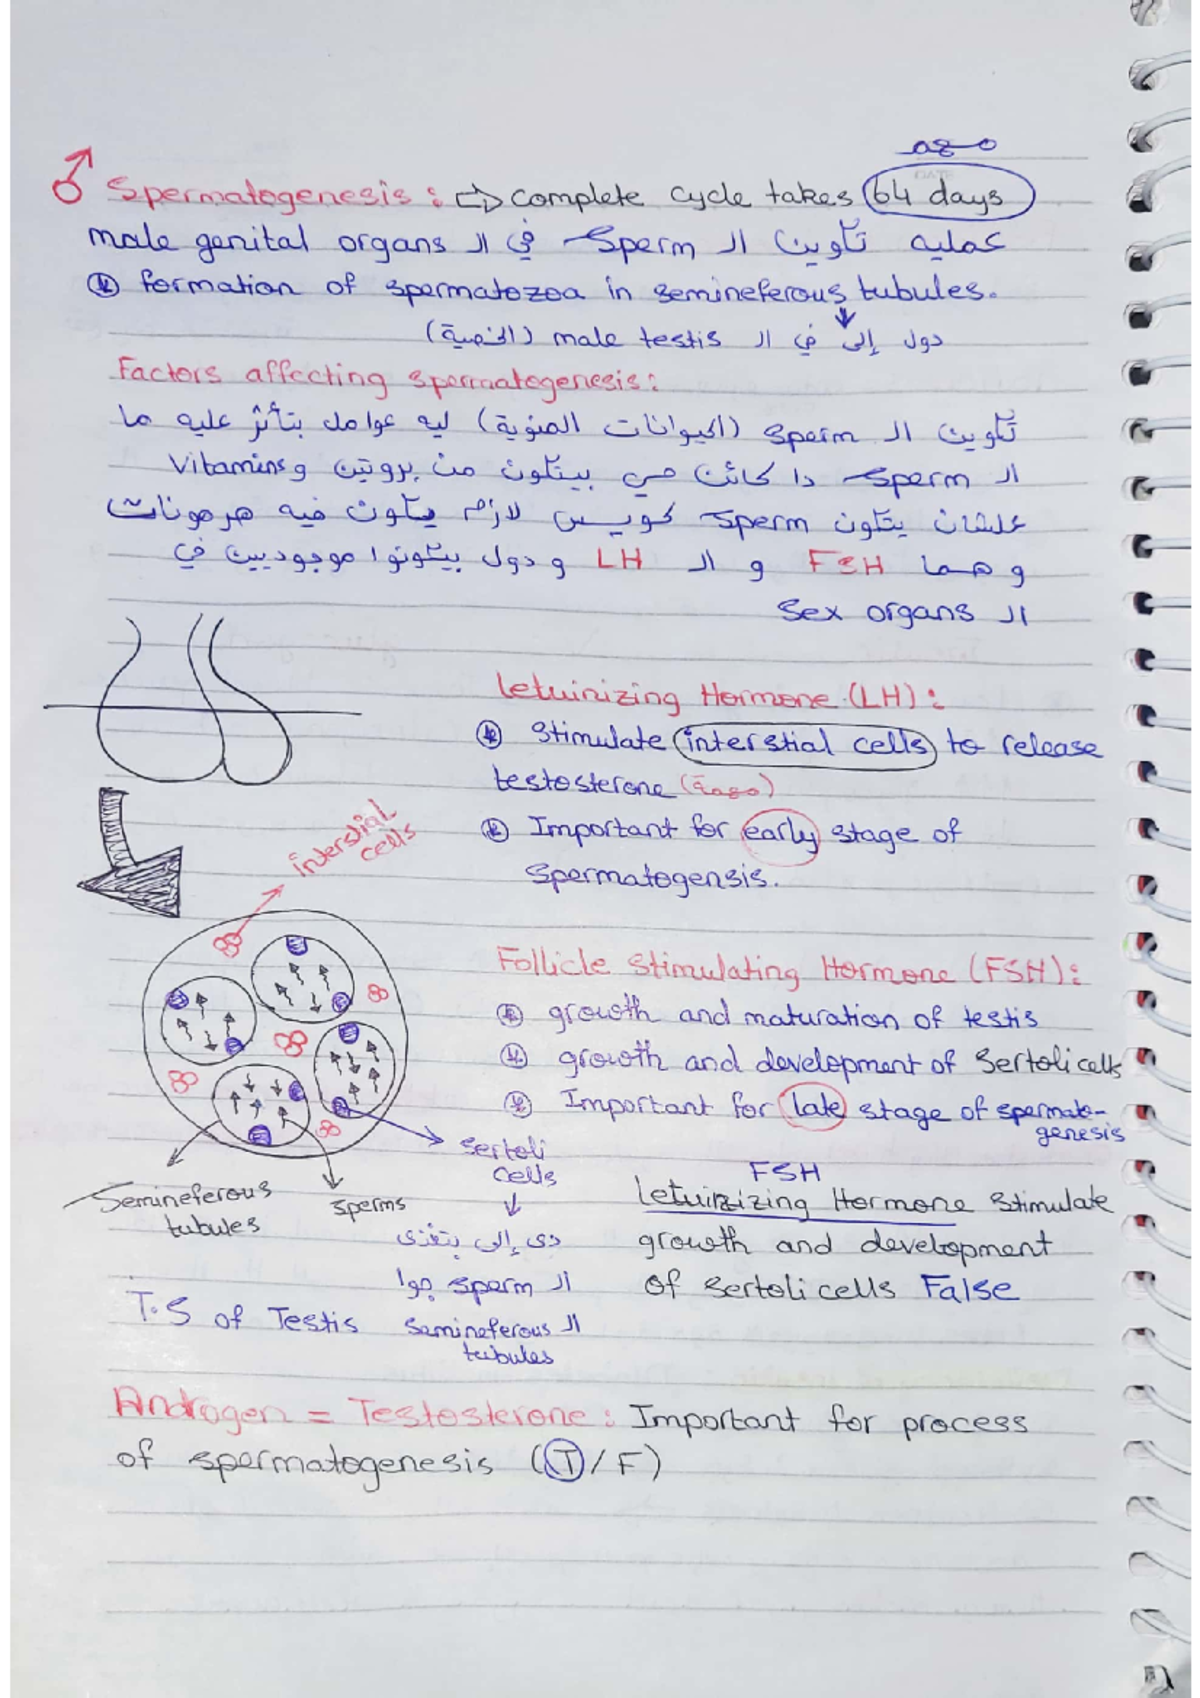 مهم
♂ Spermatogenesis : ⇨ complete cycle takes 64 days
عمليه تكوين ال Sperm في ال male genital organs
formation of spermatozoa in semineferous tubules.
دول إلى في ال male testis (الخصية)
Factors affecting spermatogenesis:
تكوين ال sperm (الحيوانات المنوية) ليه عوامل بتأثر عليه ما
ال sperm دا كائن حي بيتكون من بروتين و Vitamins
علشان يتكون sperm كويس لازم يكون فيه هرمونات
و هما FSH و ال LH و دول بيكونوا موجوديين في
ال Sex organs
Letuinizing Hormone (LH):
Stimulate interstial cells to release
testosterone (مهمة)
Important for early stage of
Spermatogensis.
interstial
cells
Follicle Stimulating Hormone (FSH):
growth and maturation of testis
growth and development of Sertoli cells
Important for late stage of spermato-
genesis
Semineferous
tubules
sperms
Sertoli
cells
دى إلى بتغذى
ال sperm جوا
ال Semineferous
tubules
T.S of Testis
FSH
Letuinizing Hormone Stimulate
growth and development
of Sertoli cells False
Androgen = Testosterone: Important for process
of spermatogenesis (T/F)